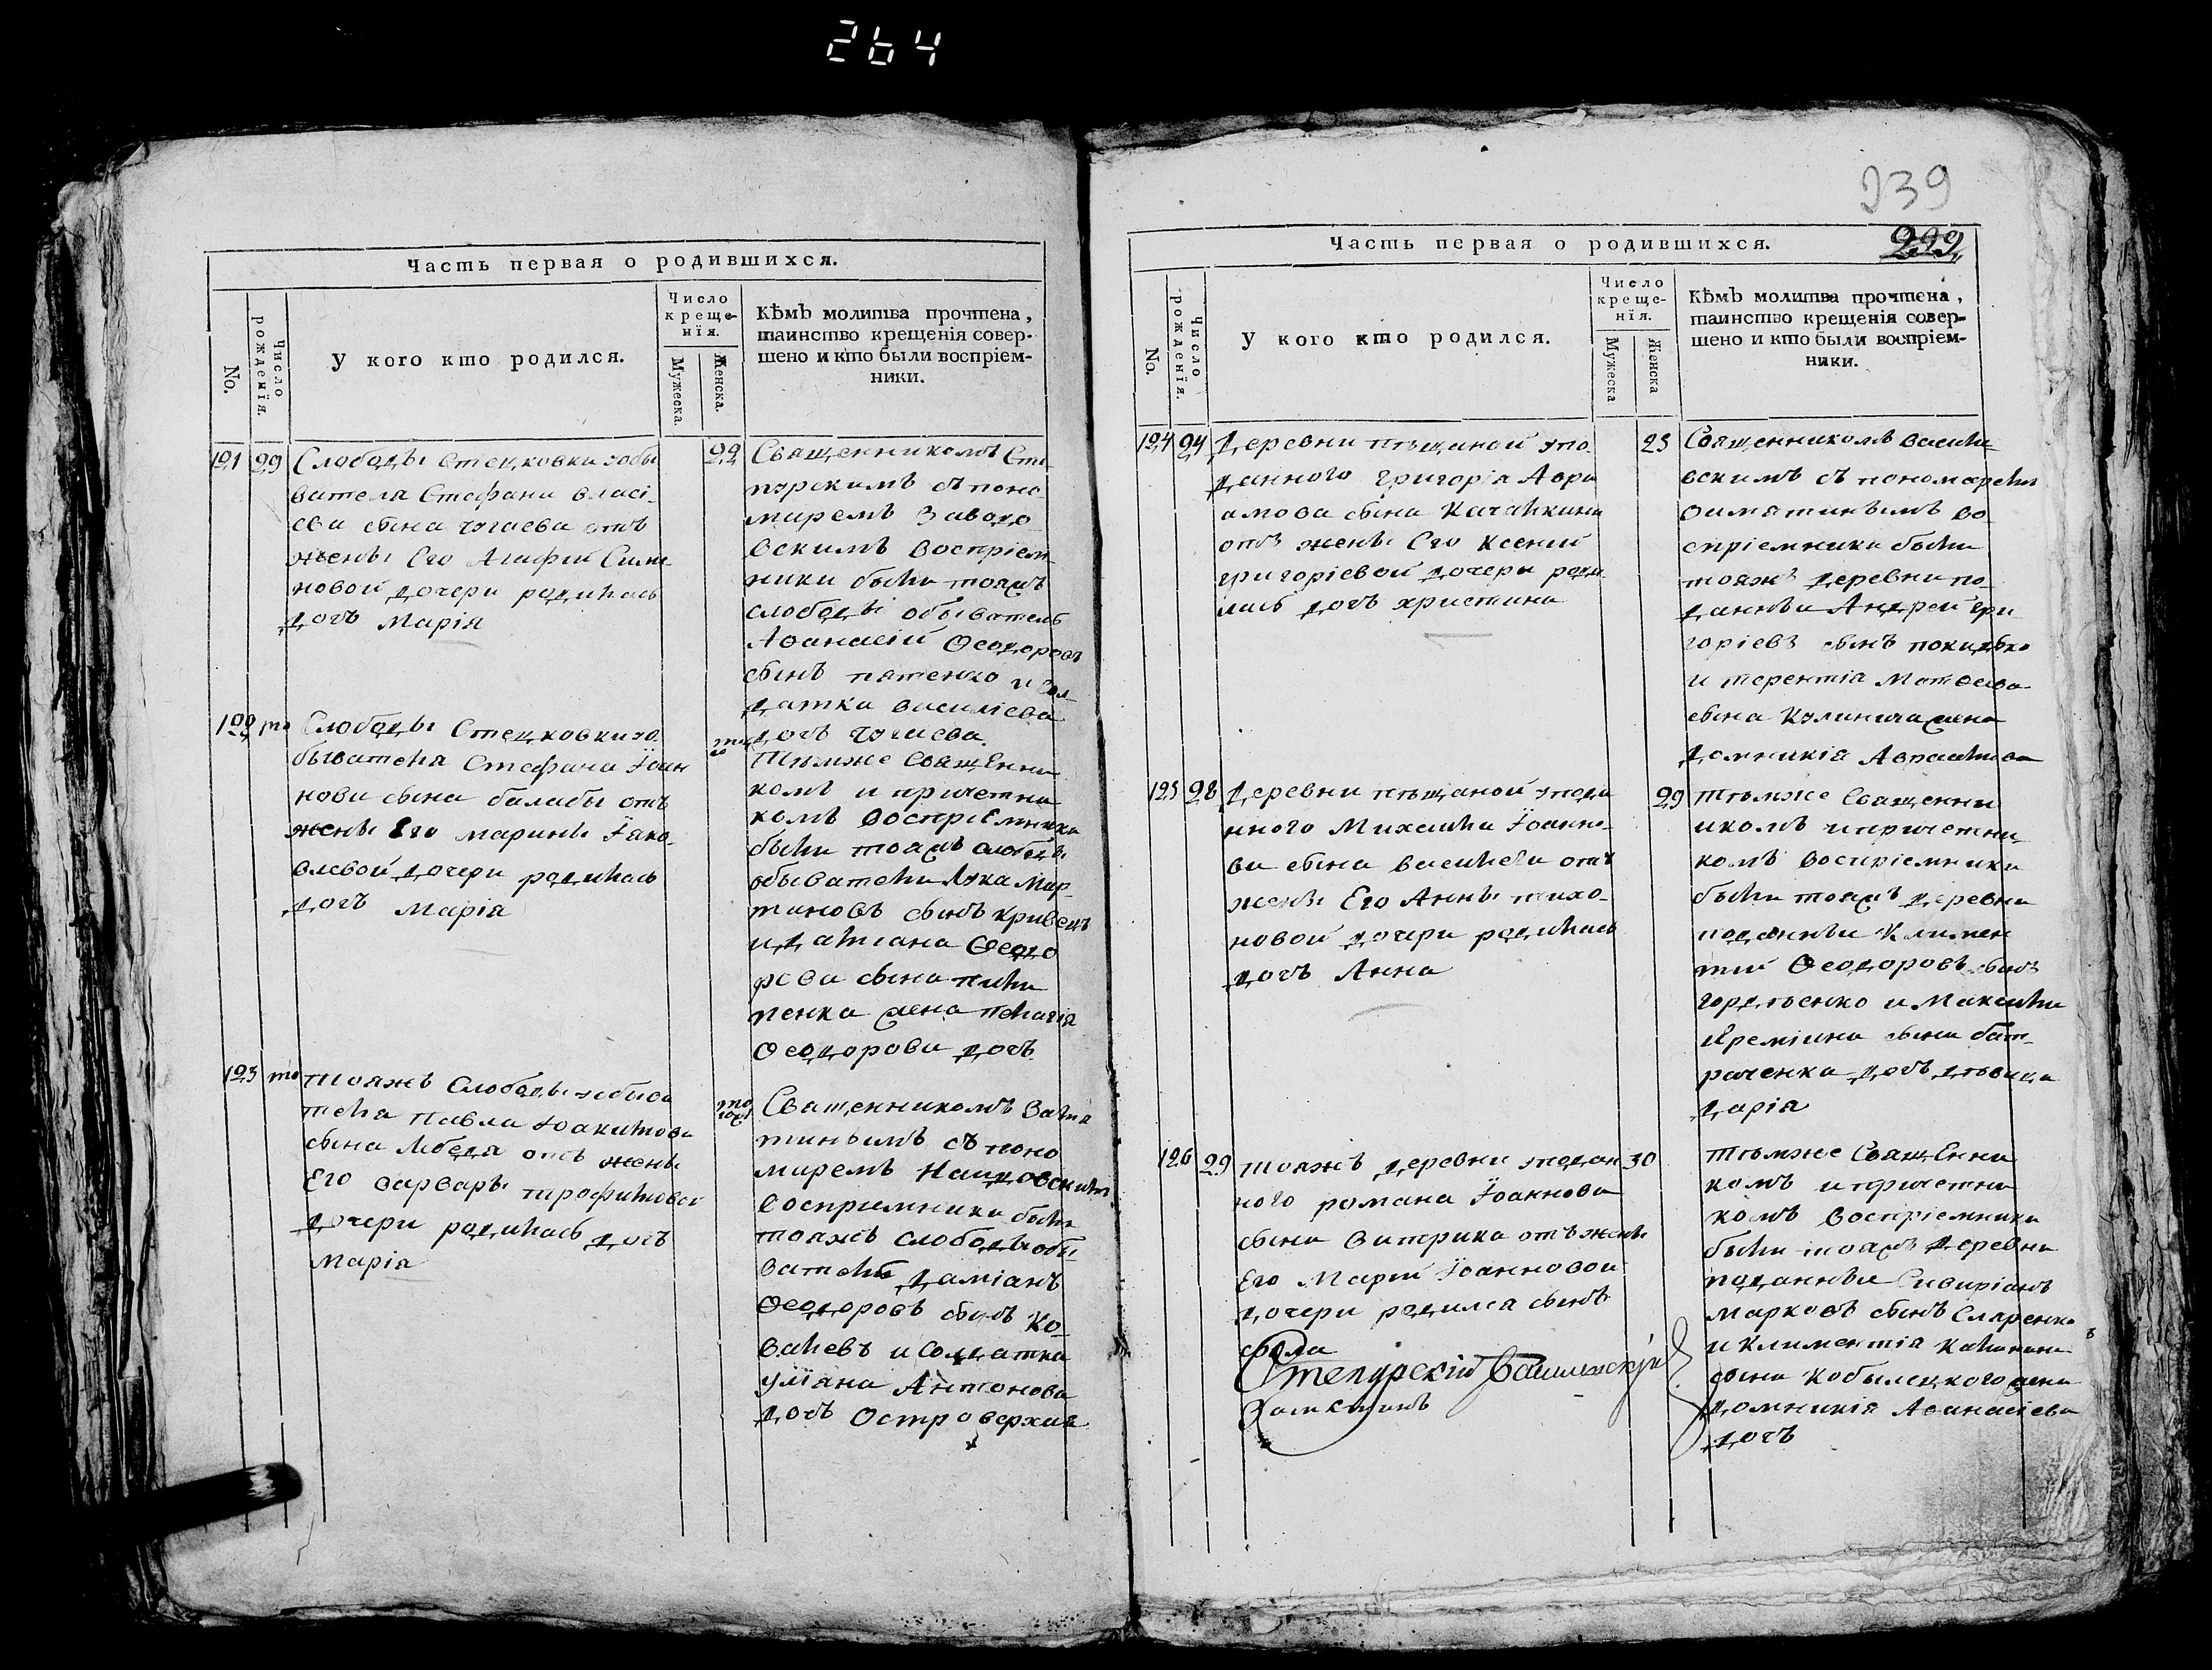 264
939
Часть первая о родившихся.
No.
Число рожденїя.
У кого кто родился.
Число креще-нїя.
Мужеска.
Женска.
Кѣмъ молитва прочтена,
таинство крещенія совер-
шено и кто были воспріем-
ники.
121 22 22
Слободы Стецковки уобы
вателя Стефана Власі_
ева сына чугаева отъ
жены Его Агафіи Симо
новой дочери родилась
дочъ Марія
Священникомъ Сте_
пурскимъ съ поно
маремъ Заводо
вскимъ Воспріем
ники были тояжъ
слободы обыватель
Аѳанасій Ѳеодоровъ
сынъ пятенко и сол
датка василіева
дочъ чугаева.
122 то
Слободы Стецковки уо
бывателя Стефана Іоан
нова сына балабы отъ
жены Его марины Іако_
влевой дочери родилась
дочъ Марія
Тѣмже Священни
комъ и причетни
комъ Воспріемники
были тояжъ слободы
обыватели Лука Мар
тиновъ сынъ кривецъ
и даміана Ѳеодо
рова сына пили
пенка жена пелагія
Ѳеодорова дочъ.
123 то
тояжъ Слободы уобыва
теля Павла Іоакимова
сына Лебедя отъ жены
Его варвары трофимовой
дочери родилась дочъ
Марія
Священникомъ Замя
тинымъ съ поно
маремъ
Воспріемники были
тояжъ слободы обы
ватель Даміанъ
Ѳеодоровъ сынъ Ко_
валевъ и Солдатка
уліяна Антонова
дочъ Островерхая
Часть первая о родившихся.
299
No.
Число рожденїя.
У кого кто родился.
Число креще-нїя.
Мужеска
Женска
Кѣмъ молитва прочтена,
таинство крещенія совер-
шено и кто были воспріем-
ники.
124 24 25
Деревни пѣщаной упо_
данного григорія Авра
амова сына Качайкина
отъ жены Его Ксеніи
григоріевой дочери роди
лась дочъ христина
Священникомъ васили
вскимъ съ пономаремъ
Замятинымъ во_
спріемники были
тояжъ деревни по_
данныи Андрей гри
горіевъ сынъ
и терентія Матѳеева
сына жена
домникія
125 28 29
Деревни пѣщаной упода
нного Михаила Іоанно_
ва сына василева отъ
жены Его Анны тихо_
новой дочери родилась
дочъ Анна
Тѣмже Священни
икомъ и причетни_
комъ воспріемники
были тояжъ деревни
поданныи Климен
тій Ѳеодоровъ сынъ
гордѣенко и Максима
Яреміина сына бат_
раченка дочъ дѣвица
дарія
126 29 30
тояжъ деревни уподан
ного романа Іоаннова
сына витрика отъ жены
Его Маріи Іоанновой
дочери родился сынъ
Тѣмже Священни
комъ и причетни
комъ Воспріемники
были тояжъ деревни
поданныи
марковъ сынъ Сляренко
и Климентія Калинина
сына Кобылецкого жена
домникія Аѳанасіева
дочъ
Степурскій
Замятинъ